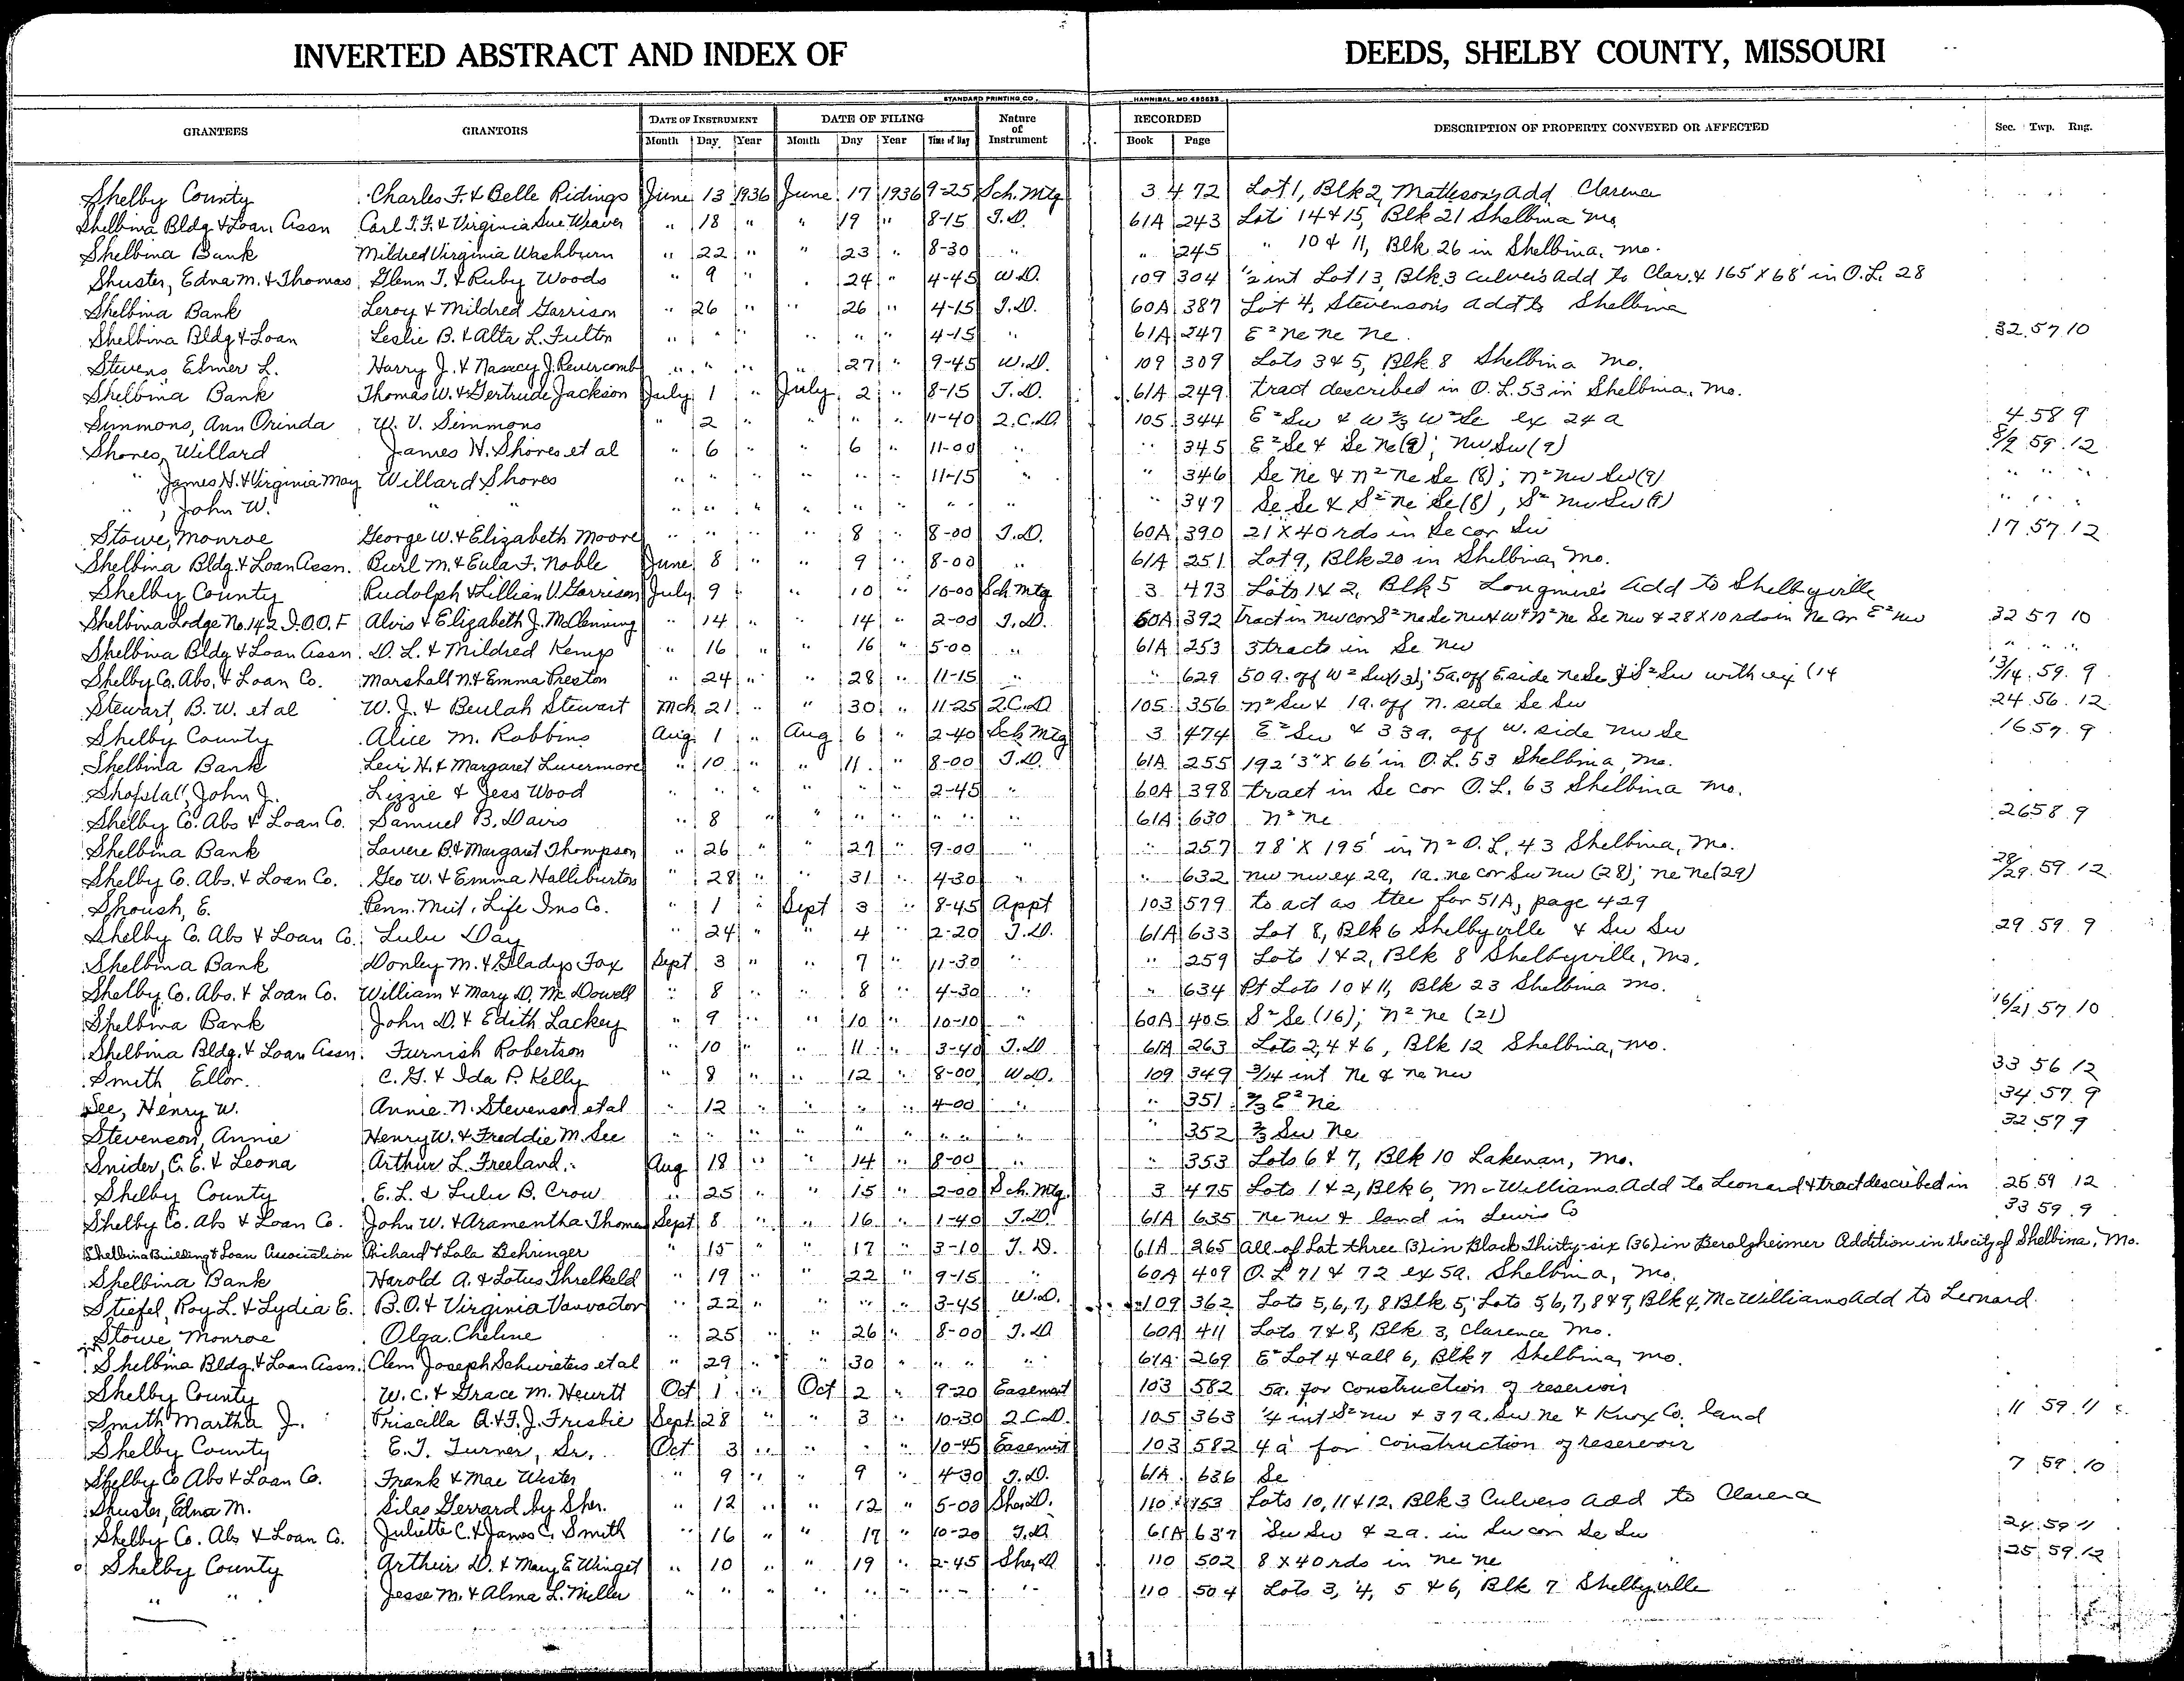 INVERTED ABSTRACT AND INDEX OF DEEDS, SHELBY COUNTY, MISSOURI
STANDARD PRINTING CO., HANNIBAL, MO
GRANTEES GRANTORS DATE OF INSTRUMENT DATE OF FILING Nature of Instrument RECORDED DESCRIPTION OF PROPERTY CONVEYED OR AFFECTED Sec. Twp. Rng.
Month Day Year Month Day Year Time of Day Book Page
Shelby County Charles F. & Belle Ridings June 13 1936 June 17 1936 9-25 Sch. Mtg 3 472 Lot 1, Blk 2, Matteson's Add Clarence
Shelbina Bldg & Loan Assn Carl T.F. & Virginia Sue Weaver " 18 " " 19 " 8-15 T.D. 61A 243 Lots 14 & 15, Blk 21 Shelbina Mo.
Shelbina Bank Mildred Virginia Washburn " 22 " " 23 " 8-30 " " 245 " 10 & 11, Blk 26 in Shelbina, Mo.
Shuster, Edna M. & Thomas Glenn T. & Ruby Woods " 9 " . 24 " 4-45 W.D. 109 304 ½ int Lot 13, Blk 3 Culver's Add to Clar. & 165' X 68' in O.L. 28
Shelbina Bank Leroy & Mildred Garrison " 26 " " 26 " 4-15 T.D. 60A 387 Lot 4, Stevenson's Add to Shelbina
Shelbina Bldg & Loan Leslie B. & Alta L. Fulton " " " " " " 4-15 " 61A 247 E² Ne Ne Ne 32 57 10
Stevens Elmer L. Harry J. & Nancy J. Revercomb " " " " 27 " 9-45 W.D. 109 309 Lots 3 & 5, Blk 8 Shelbina Mo.
Shelbina Bank Thomas W. & Gertrude Jackson July 1 " July 2 " 8-15 T.D. 61A 249 tract described in O.L. 53 in Shelbina, Mo.
Simmons, Ann Orinda W. V. Simmons " 2 " " " " 11-40 2.C.D. 105 344 E² Sw & W ⅔ W² Se ex 24 a 4 58 9
Shores, Willard James H. Shores et al " 6 " " 6 " 11-00 " " 345 E² Se & Se Ne (8); Nw Sw (9) 8/9 59 12
" James H. & Virginia May Willard Shores " " " " " " 11-15 " " 346 Se Ne & N² Ne Se (8); N² Nw Sw (9) " " "
" , John W. " " " " " " " " " " " " 347 Se Se & S² Ne Se (8), S² Nw Sw (9) " " "
Stowe, Monroe George W. & Elizabeth Moore " " " " 8 " 8-00 T.D. 60A 390 21 X 40 rds in Se cor Sw 17 57 12
Shelbina Bldg. & Loan Assn. Burl M. & Eula F. Noble June 8 " " 9 " 8-00 " 61A 251 Lot 9, Blk 20 in Shelbina, Mo.
Shelby County Rudolph & Lillian V. Garrison July 9 " " 10 " 10-00 Sch Mtg 3 473 Lots 1 & 2, Blk 5 Longmire's Add to Shelbyville
Shelbina Lodge No. 142 I.O.O.F Alvis & Elizabeth J. McClenning " 14 " " 14 " 2-00 T.D. 60A 392 Tract in Nw cor S² Ne Se Nw & W² N² Ne Se Nw & 28 X 10 rds in Ne cor E² Nw 32 57 10
Shelbina Bldg & Loan Assn. D. L. & Mildred Kemp " 16 " " 16 " 5-00 " 61A 253 3 tracts in Se Nw " " "
Shelby Co. Abs. & Loan Co. Marshall N. & Emma Preston " 24 " " 28 " 11-15 " " 629 50 a. off W² Sw (13); 5a. off E. side Ne Se & S² Sw with ex (14 13/14 59 9
Stewart, B. W. et al W. J. & Beulah Stewart Mch 21 " " 30 " 11-25 2 C.D. 105 356 N² Sw & 1a. off N. side Se Sw 24 56 12
Shelby County Alice M. Robbins Aug 1 " Aug 6 " 2-40 Sch Mtg 3 474 E² Sw & 33a. off W. side Nw Se 16 57 9
Shelbina Bank Levi H. & Margaret Livermore " 10 " " 11 " 8-00 T.D. 61A 255 192' 3" X 66' in O.L. 53 Shelbina, Mo.
Shofstall, John J. Lizzie & Jess Wood " " " " " " 2-45 " 60A 398 tract in Se cor O.L. 63 Shelbina Mo.
Shelby Co. Abs & Loan Co. Samuel B. Davis " 8 " " " " " " 61A 630 N² Ne 26 58 9
Shelbina Bank Lavere B. & Margaret Thompson " 26 " " 27 " 9-00 " " 257 78' X 195' in N² O.L. 43 Shelbina, Mo.
Shelby Co. Abs. & Loan Co. Geo W. & Emma Halliburton " 28 " " 31 " 4-30 " " 632 Nw Nw ex 2a, 1a. Ne cor Sw Nw (28); Ne Ne (29) 28/29 59 12
Shoush, E. Penn. Mut. Life Ins Co. " 1 " Sept 3 " 8-45 Appt 103 579 to act as ttee for 51A, page 429
Shelby Co. Abs & Loan Co. Lulu Day " 24 " " 4 " 2-20 T.D. 61A 633 Lot 8, Blk 6 Shelbyville & Sw Sw 29 59 9
Shelbina Bank Donley M. & Gladys Fox Sept 3 " " 7 " 11-30 " " 259 Lots 1 & 2, Blk 8 Shelbyville, Mo.
Shelby Co. Abs. & Loan Co. William & Mary D. McDowell " 8 " " 8 " 4-30 " " 634 Pt Lots 10 & 11, Blk 23 Shelbina Mo.
Shelbina Bank John D. & Edith Lackey " 9 " " 10 " 10-10 " 60A 405 S² Se (16); N² Ne (21) 16/21 57 10
Shelbina Bldg. & Loan Assn. Furnish Robertson " 10 " " 11 " 3-40 T.D 61A 263 Lots 2, 4 & 6, Blk 12 Shelbina, Mo.
Smith Ellor. C. G. & Ida P. Kelly " 8 " " 12 " 8-00 W.D. 109 349 3/14 int Ne & Ne Nw 33 56 12
See, Henry W. Annie N. Stevenson et al " 12 " " " " 4-00 " " 351 ⅔ E² Ne 34 57 9
Stevenson, Annie Henry W. & Freddie M. See " " " " " " " " " 352 ⅔ Sw Ne 32 57 9
Snider, C. E. & Leona Arthur L. Freeland Aug 18 " " 14 " 8-00 " " 353 Lots 6 & 7, Blk 10 Lakenan, Mo.
Shelby County E. L. & Lulu B. Crow " 25 " " 15 " 2-00 Sch. Mtg. 3 475 Lots 1 & 2, Blk 6, McWilliams Add to Leonard & tract described in 25 59 12
Shelby Co. Abs & Loan Co. John W. & Aramentha Thomas Sept 8 " " 16 " 1-40 T.D. 61A 635 Ne Nw & land in Lewis Co 33 59 9
Shelbina Building & Loan Association Richard & Lola Behringer " 15 " " 17 " 3-10 T.D. 61A 265 all of Lot three (3) in Block Thirty-six (36) in Berolzheimer Addition in the city of Shelbina, Mo.
Shelbina Bank Harold A. & Lotus Threlkeld " 19 " " 22 " 9-15 " 60A 409 O.L. 71 & 72 ex 5a. Shelbina, Mo.
Stiefel, Roy L. & Lydia E. B. O. & Virginia Vanvactor " 22 " " " 3-45 W.D. 109 362 Lots 5, 6, 7, 8 Blk 5; Lots 5, 6, 7, 8 & 9, Blk 4, McWilliams Add to Leonard
Stowe, Monroe Olga Cheline " 25 " " 26 " 8-00 T.D 60A 411 Lots 7 & 8, Blk 3, Clarence Mo.
Shelbina Bldg. & Loan Assn. Clem Joseph Schwieters et al " 29 " " 30 " " " " 61A 269 E² Lot 4 & all 6, Blk 7 Shelbina, Mo.
Shelby County W. C. & Grace M. Hewitt Oct 1 " Oct 2 " 9-20 Easement 103 582 5a. for construction of reservoir
Smith Martha J. Priscilla A. & F. J. Frisbie Sept 28 " " 3 " 10-30 2 C.D. 105 363 ¼ int S² Nw & 37 a. Sw Ne & Knox Co. land 11 59 11
Shelby County E. T. Turner, Sr. Oct 3 " " " 10-45 Easement 103 582 4 a for construction of reservoir
Shelby Co Abs & Loan Co. Frank & Mae Wester " 9 " " 9 " 4-30 T.D. 61A 636 Se 7 59 10
Shuster, Edna M. Silas Gerrard by Sher. " 12 " " 12 " 5-00 Sher D. 110 453 Lots 10, 11 & 12, Blk 3 Culvers Add to Clarence
Shelby Co. Abs & Loan Co. Juliette C. & James C. Smith " 16 " " 17 " 10-20 T.D. 61A 637 Sw Sw & 2a. in Sw cor Se Sw 24 59 11
Shelby County Arthur D. & Mary E Winget " 10 " " 19 " 2-45 She, D 110 502 8 X 40 rds in Ne Ne 25 59 12
" " Jesse M. & Alma L. Miller " " " " " " " " 110 504 Lots 3, 4, 5 & 6, Blk 7 Shelbyville